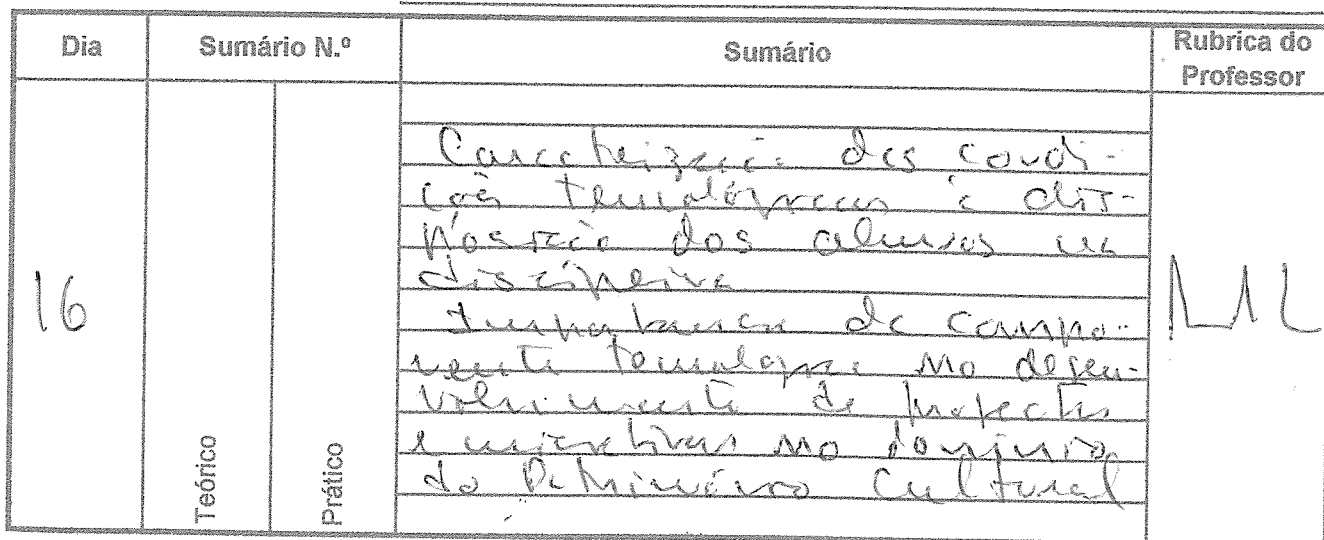 Dia
Sumário N.º
Sumário
Rubrica do
Professor
16
Teórico
Prático
Caracterização das condi-
ções tecnológicas à dis-
posição dos alunos na
disciplina
Importância da compo-
nente tecnológica no desen-
volvimento de projectos
e iniciativas no domínio
do Património Cultural